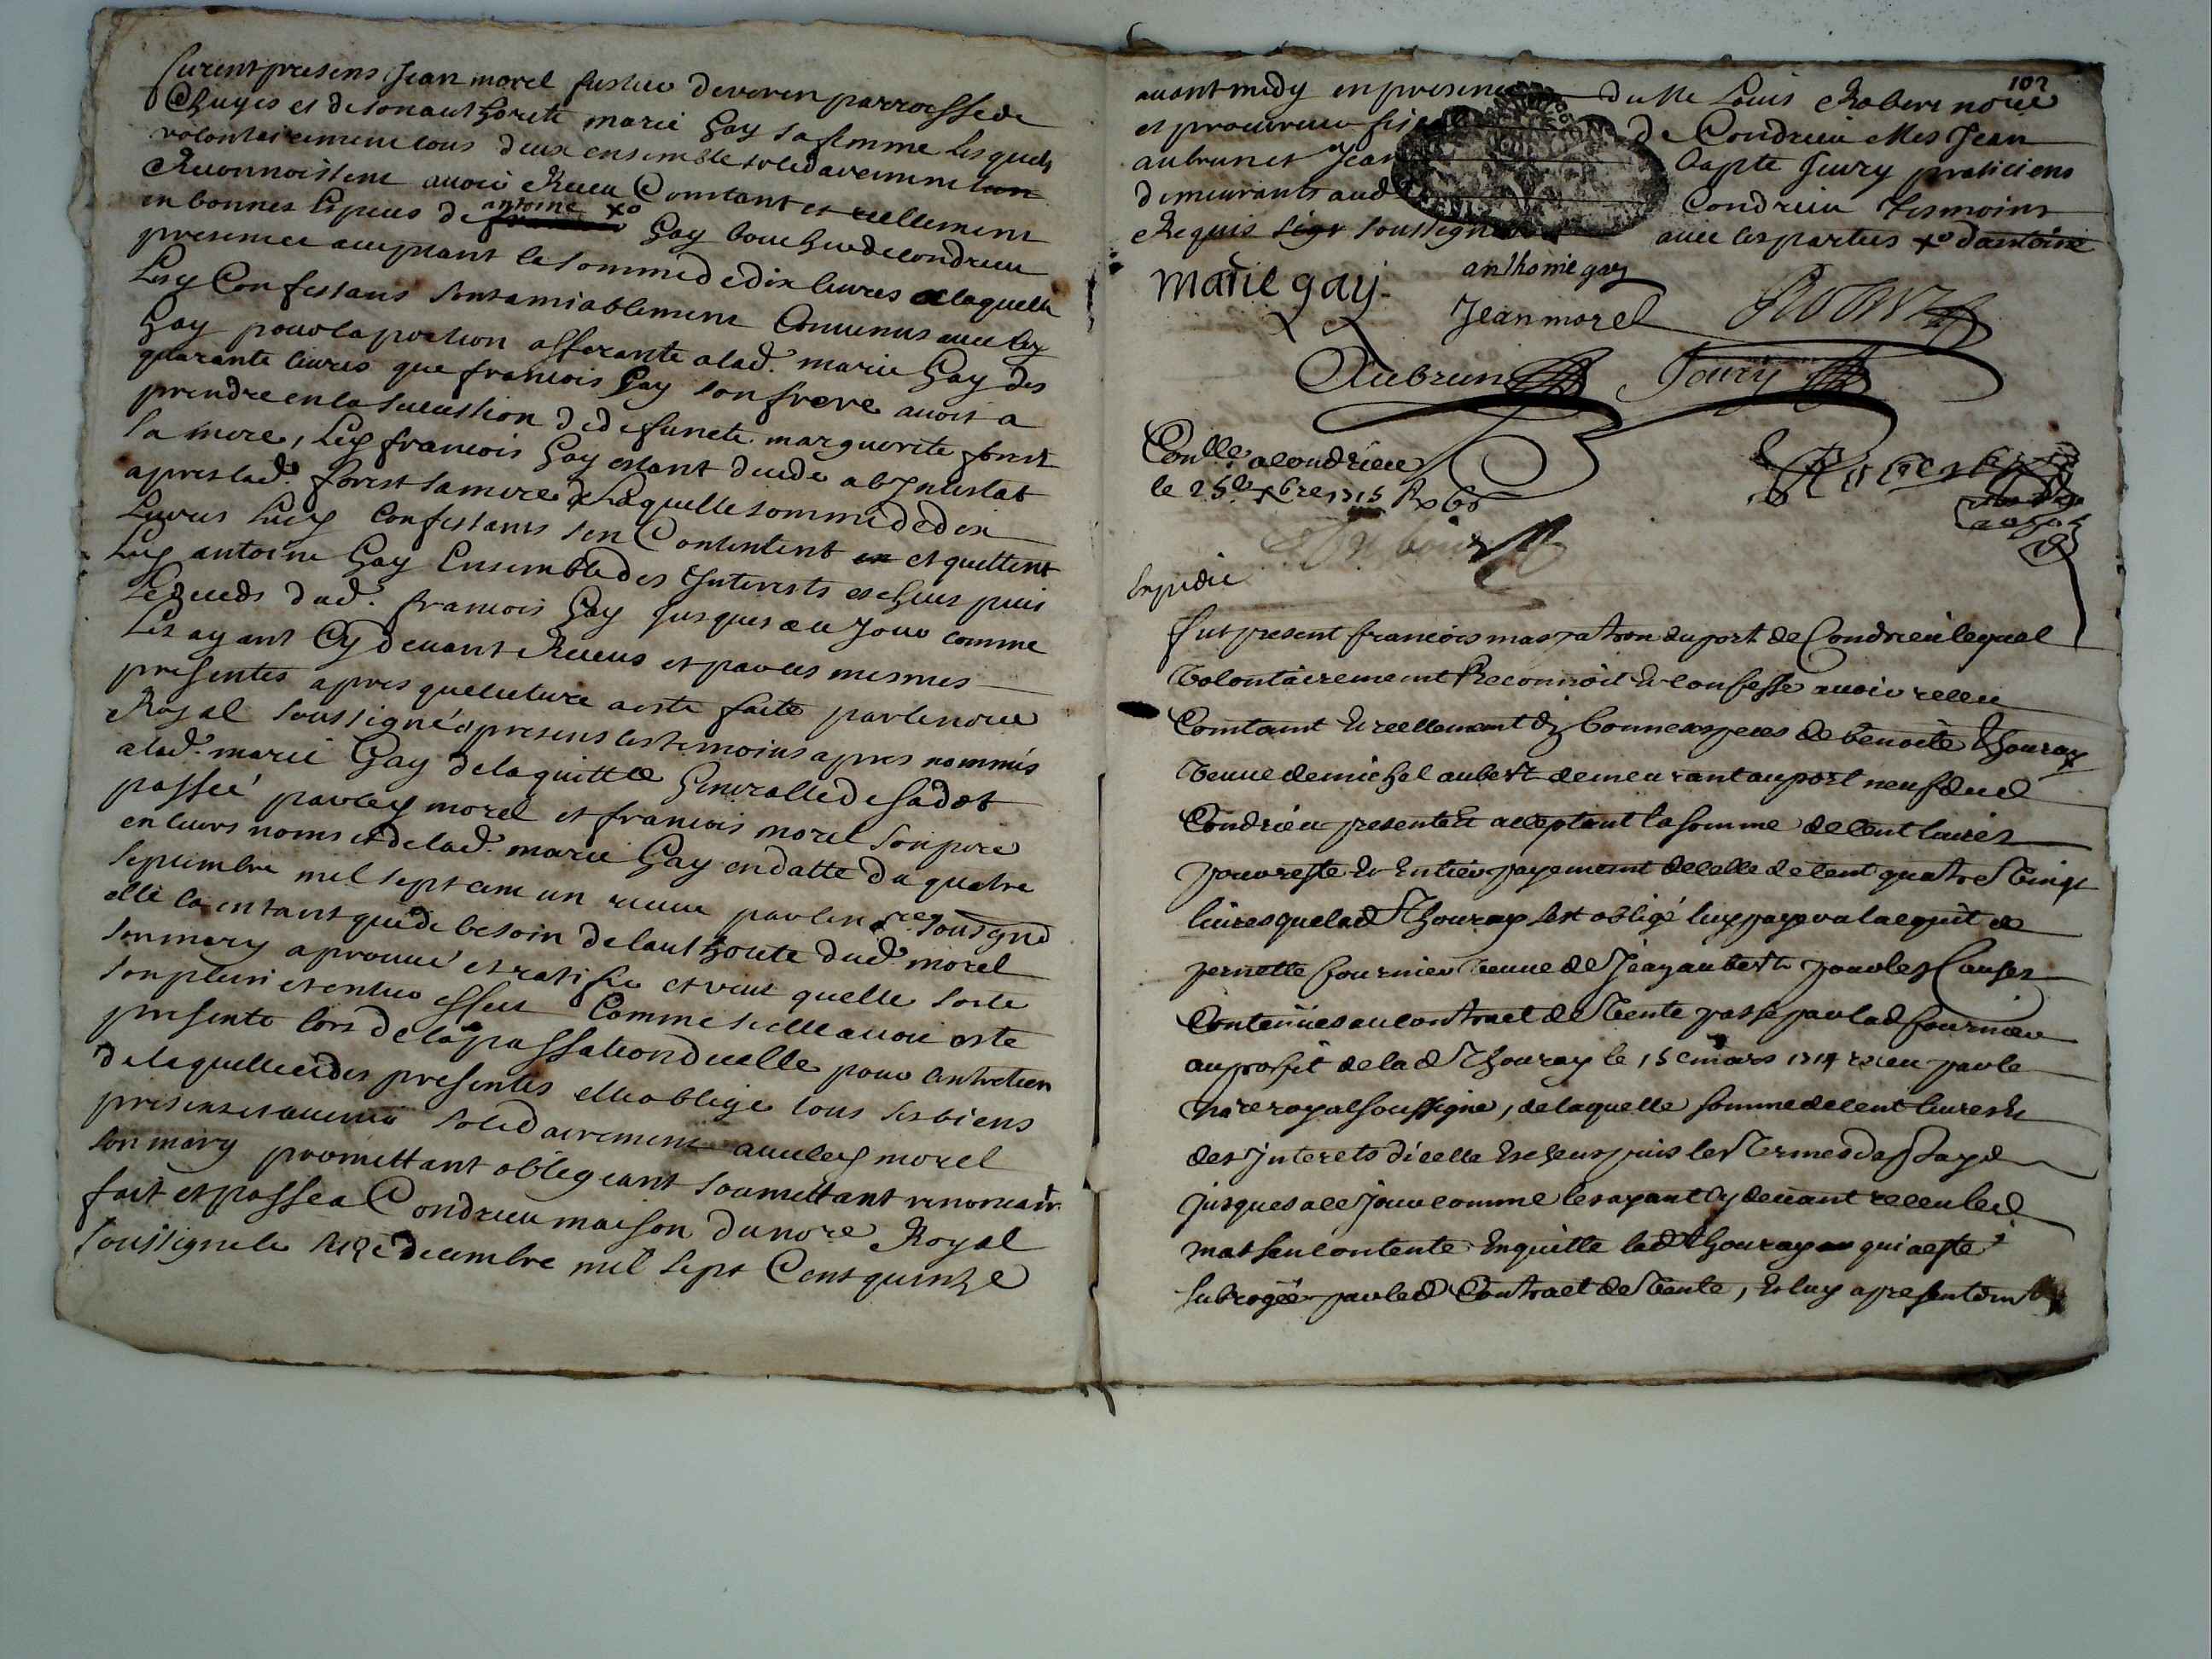 furent presens Jean morel fustier de veren parroesse de
Chuyes et de son authorité marie Gay sa femme lesquels
volontairement tous deux ensemble solidairement
Reconnoissent avoir Receu Comtant et reellement
en bonnes especes de antoine xo Gay boucher de condrieu
present et acceptant la somme de dix livres a laquelle
Lesd Confessans sont amiablement Convenus avec led
Gay pour la portion afferante a lad. marie Gay des
quarante livres que francois Gay son frere avoit a
prendre en la succession de defuncte marguerite forest
sa mere, led francois Gay estant decedé ab Intestat
apres lad. forest sa mere de Laquelle somme de dix
Livres Lesd Confessans s'en Contentent et quittent
Led antoine Gay Ensemble des Interests escheus puis
Le deceds dud. francois Gay jusques a ce Jour comme
Les ayant Cy devant Receus et par ces mesmes
presentes apres que lecture a esté faite par le nore
Royal soussigné presens les temoins apres nommés
a lad. marie Gay de la quittce Generalle de sa dot
passée par led morel et francois morel son pere
en leurs noms et de lad. marie Gay en datte du quatre
septembre mil sept cent un receue par le nre sousigné
elle la en tant que de besoin de lauthorité dud. morel
son mary aprouvé et ratifie et veut quelle sorte
son plein et entier effect Comme si elle avoit esté
presente lors de la passation dicelle pour lentretien
de laquelle et des presentes elle oblige tous ses biens
presens et avenir solidairement avec led morel
son mary promettant obligeant soumettant renoncant
fait et passé a Condrieu maison du nore Royal
soussigné le decembre mil sept Cent quinze
102
avant midy en presence du Me Louis Robert nore
et procureur fis de Condrieu Mes Jean
aubrun et Jean bapte Jeury praticiens
demeurants aud Condrieu tesmoins
Requis soussign avec les parties xo dantoine
Marie gay
anthoine gay
Jean morel Robert
Aubrun Jeury
Conlle a condrieu
le 25e xbre 1715 R
Robert
Expedié
fut present francois mas patron du port de Condrieu lequel
volontairement Reconnoit & confesse avoir receu
Comtant & reellement en bonnes especes de benoite Thouray
veuve de michel aubert demeurant au port neuf dud
Condrieu presente & acceptant la somme de cent livres
pour reste & entier payement de celle de cent quatre vingt
livres que lad Thouray s'est obligé luy payer a lacquit de
pernette fournier veuve de Jean aubert pour les Causes
Contenues au contract de vente passé par lad fournier
au proffit de lad Thouray le 15e mars 1714 receu par le
nore royal soussigné, de laquelle somme de cent livres &
des Interets dicelle escheus puis les termes
jusques a ce jour comme les ayant cy devant receu led
mas sen contente & quitte lad thouray qui a esté
subrogée par led Contract de vente, & luy a presentem